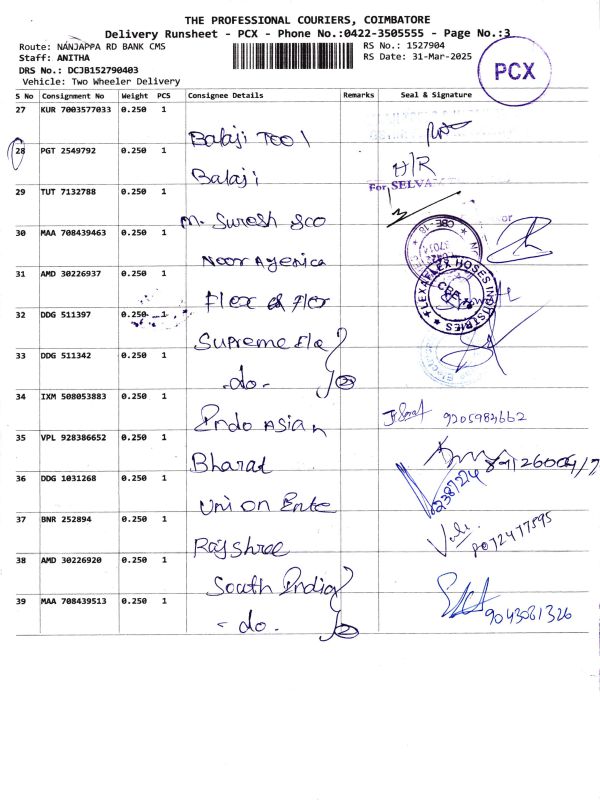 THE PROFESSIONAL COURIERS, COIMBATORE
Delivery Runsheet - PCX - Phone No.:0422-3505555 - Page No.:3
Route: NANJAPPA RD BANK CMS
RS No.: 1527904
Staff: ANITHA
RS Date: 31-Mar-2025
DRS No.: DCJB152790403
Vehicle: Two Wheeler Delivery
PCX
S No Consignment No Weight PCS Consignee Details Remarks Seal & Signature
27 KUR 7003577033 0.250 1
Balaji Tool
28 PGT 2549792 0.250 1
Balaji
H/R
For SELVAM
29 TUT 7132788 0.250 1
M. Suresh &co
30 MAA 708439463 0.250 1
Noor Agencica
CBE-18
31 AMD 30226937 0.250 1
Flex & Flex
FLEXAFLEX HOSES INDUSTRIES
32 DDG 511397 0.250 1
Supreme Ele
33 DDG 511342 0.250 1
-do- 2
34 IXM 508053883 0.250 1
Indo Asian
9205983662
35 VPL 928386652 0.250 1
Bharat
36 DDG 1031268 0.250 1
Union Ente
37 BNR 252894 1
0.250
Rajshree
8072477595
38 AMD 30226920 0.250 1
South India
39 MAA 708439513 0.250 1
- do. 2
9043081326